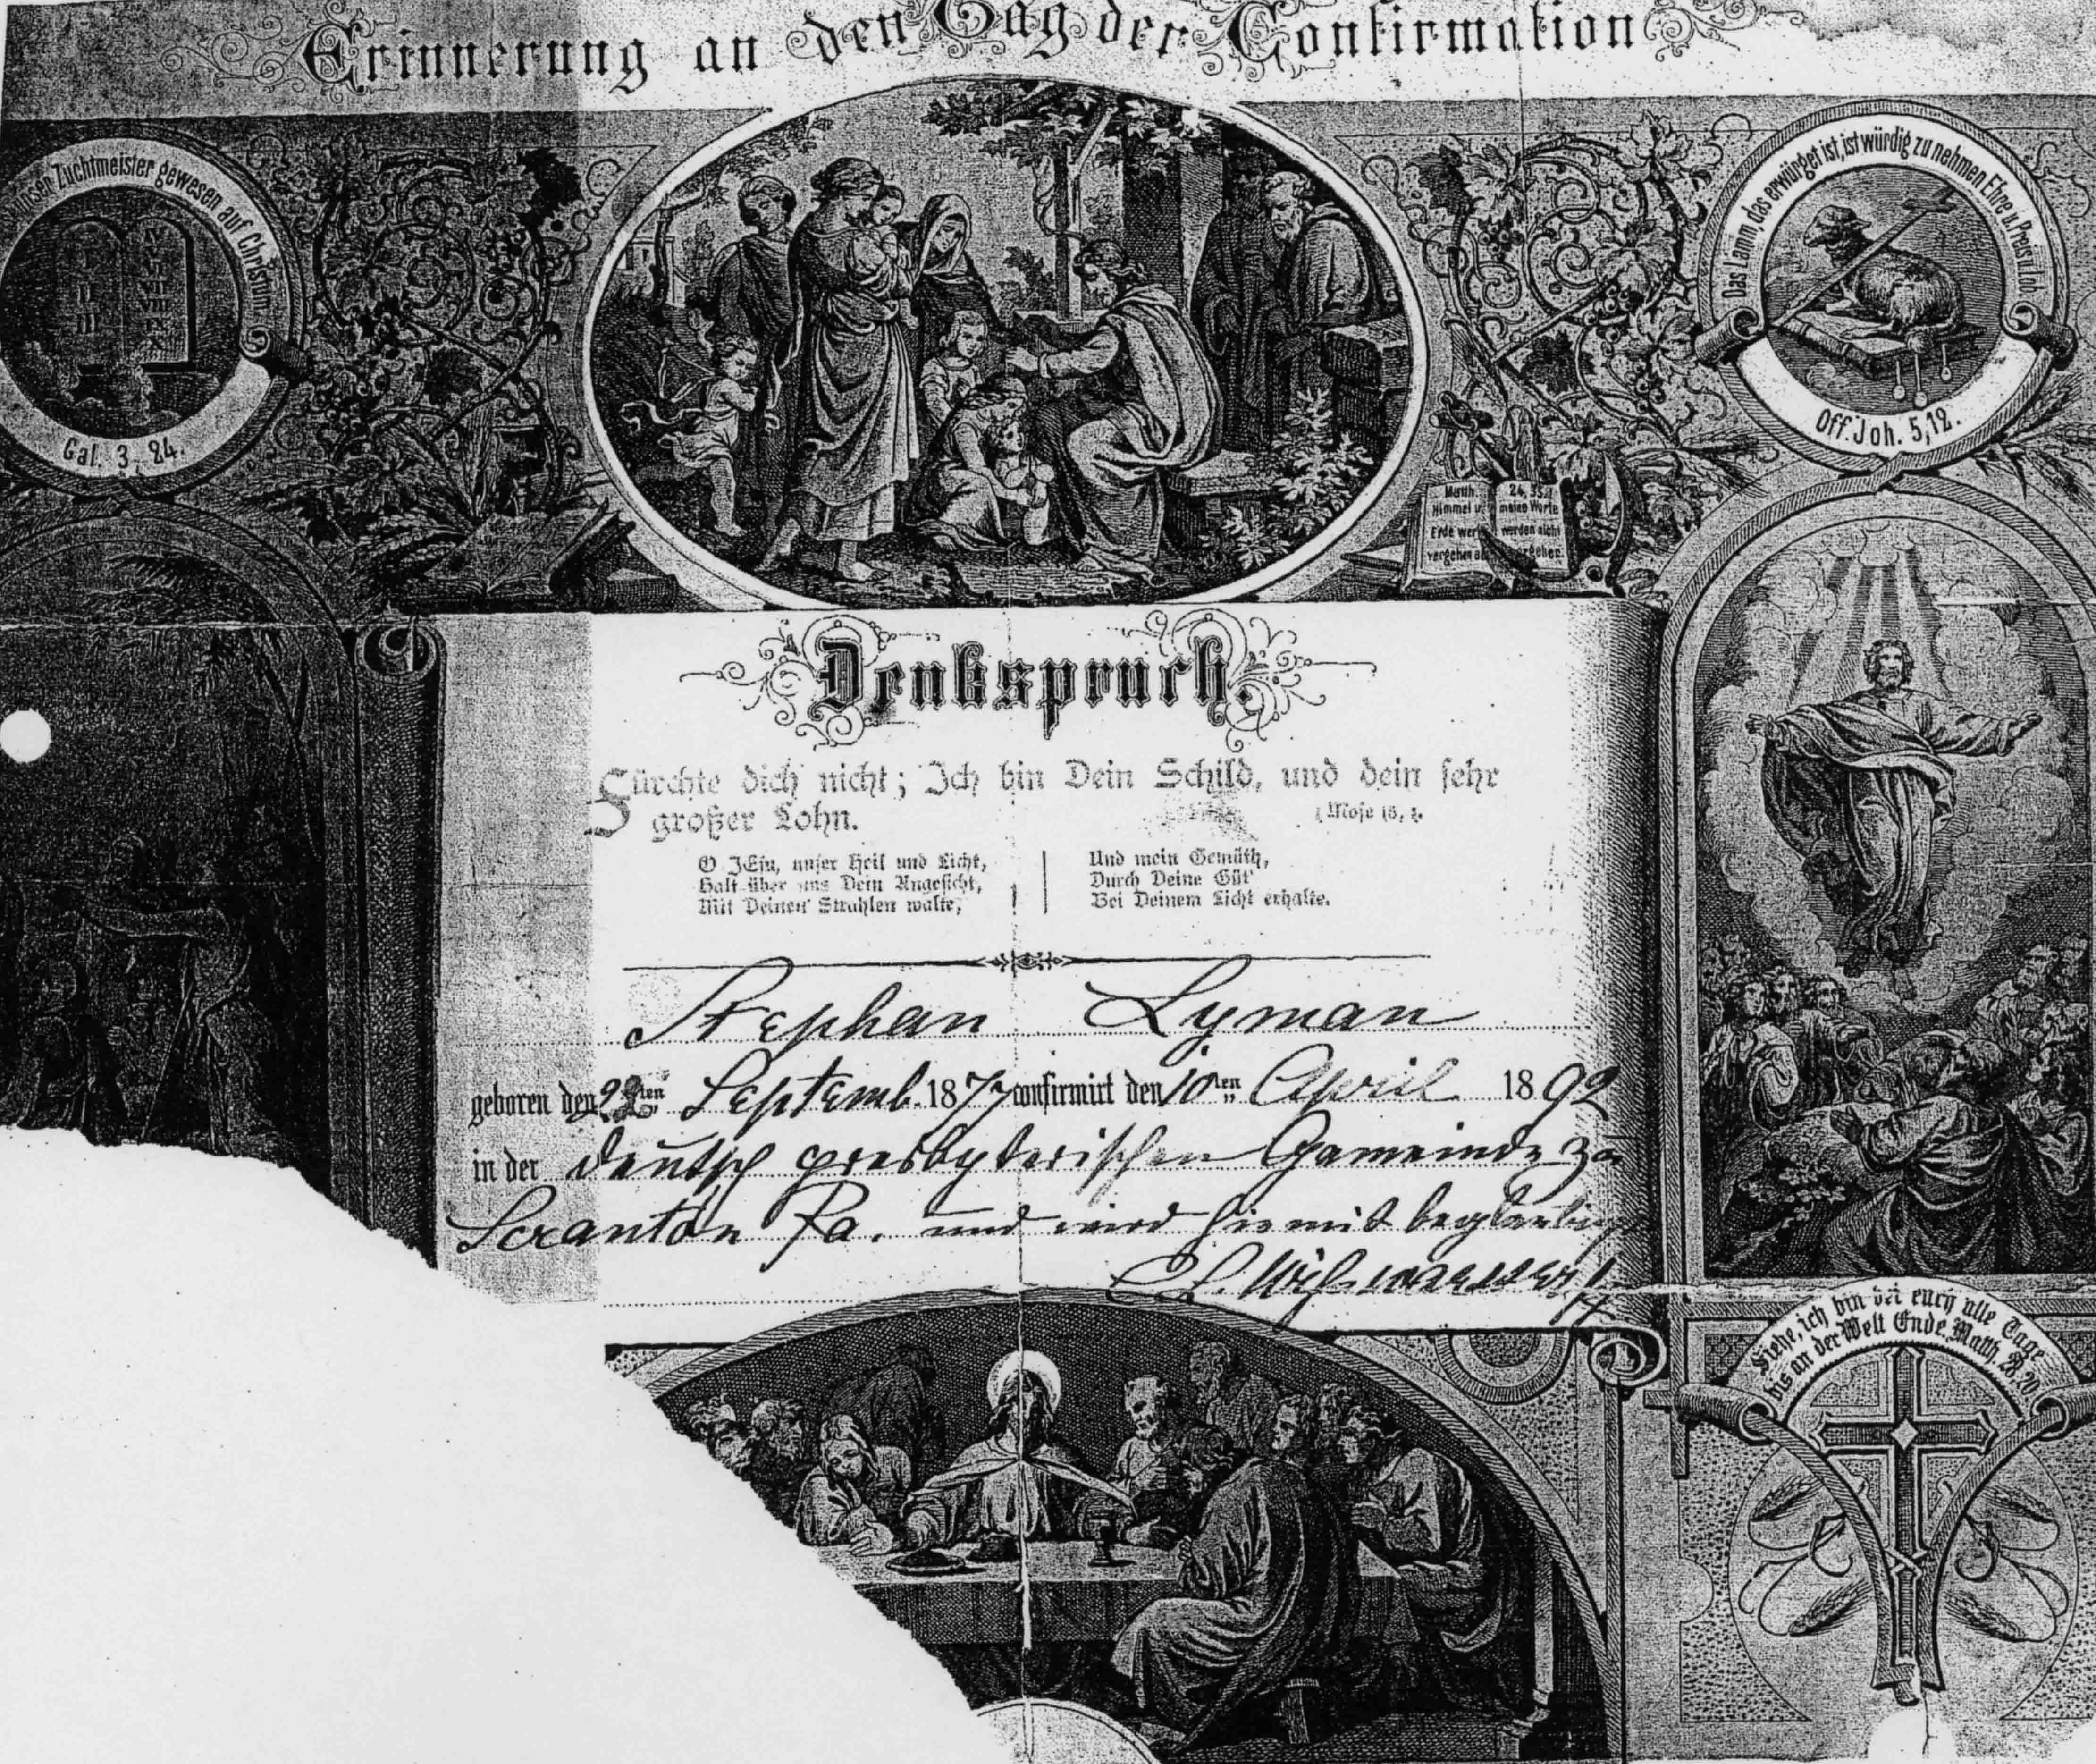 Erinnerung an den Tag der Confirmation
unser Zuchtmeister gewesen auf Christum
Gal. 3, 24.
Das Lamm, das erwürget ist, ist würdig zu nehmen Ehre u. Preis u. Lob
Off. Joh. 5,12.
Matth. 24, 35.
Himmel u. meine Worte
Erde werd werden nicht
vergehen ab vergehen.
Denkspruch.
Fürchte dich nicht; Ich bin Dein Schild, und dein sehr
großer Lohn. 1 Mose 15, 1.
O JEsu, unser Heil und Licht,
Halt über uns Dein Angesicht,
Mit Deinen Strahlen walte,
Und mein Gemüth,
Durch Deine Güt'
Bei Deinem Licht erhalte.
Stephan Lyman
geboren den ten Septemb. 1877 confirmirt den 10ten April 1892
in der deutsch presbyterischen Gemeinde zu
Scranton Pa. und wird hiemit beglaubigt
Siehe, ich bin bei euch alle Tage
bis an der Welt Ende. Matth. 28, 20.
I II III IV V VI VII VIII IX X